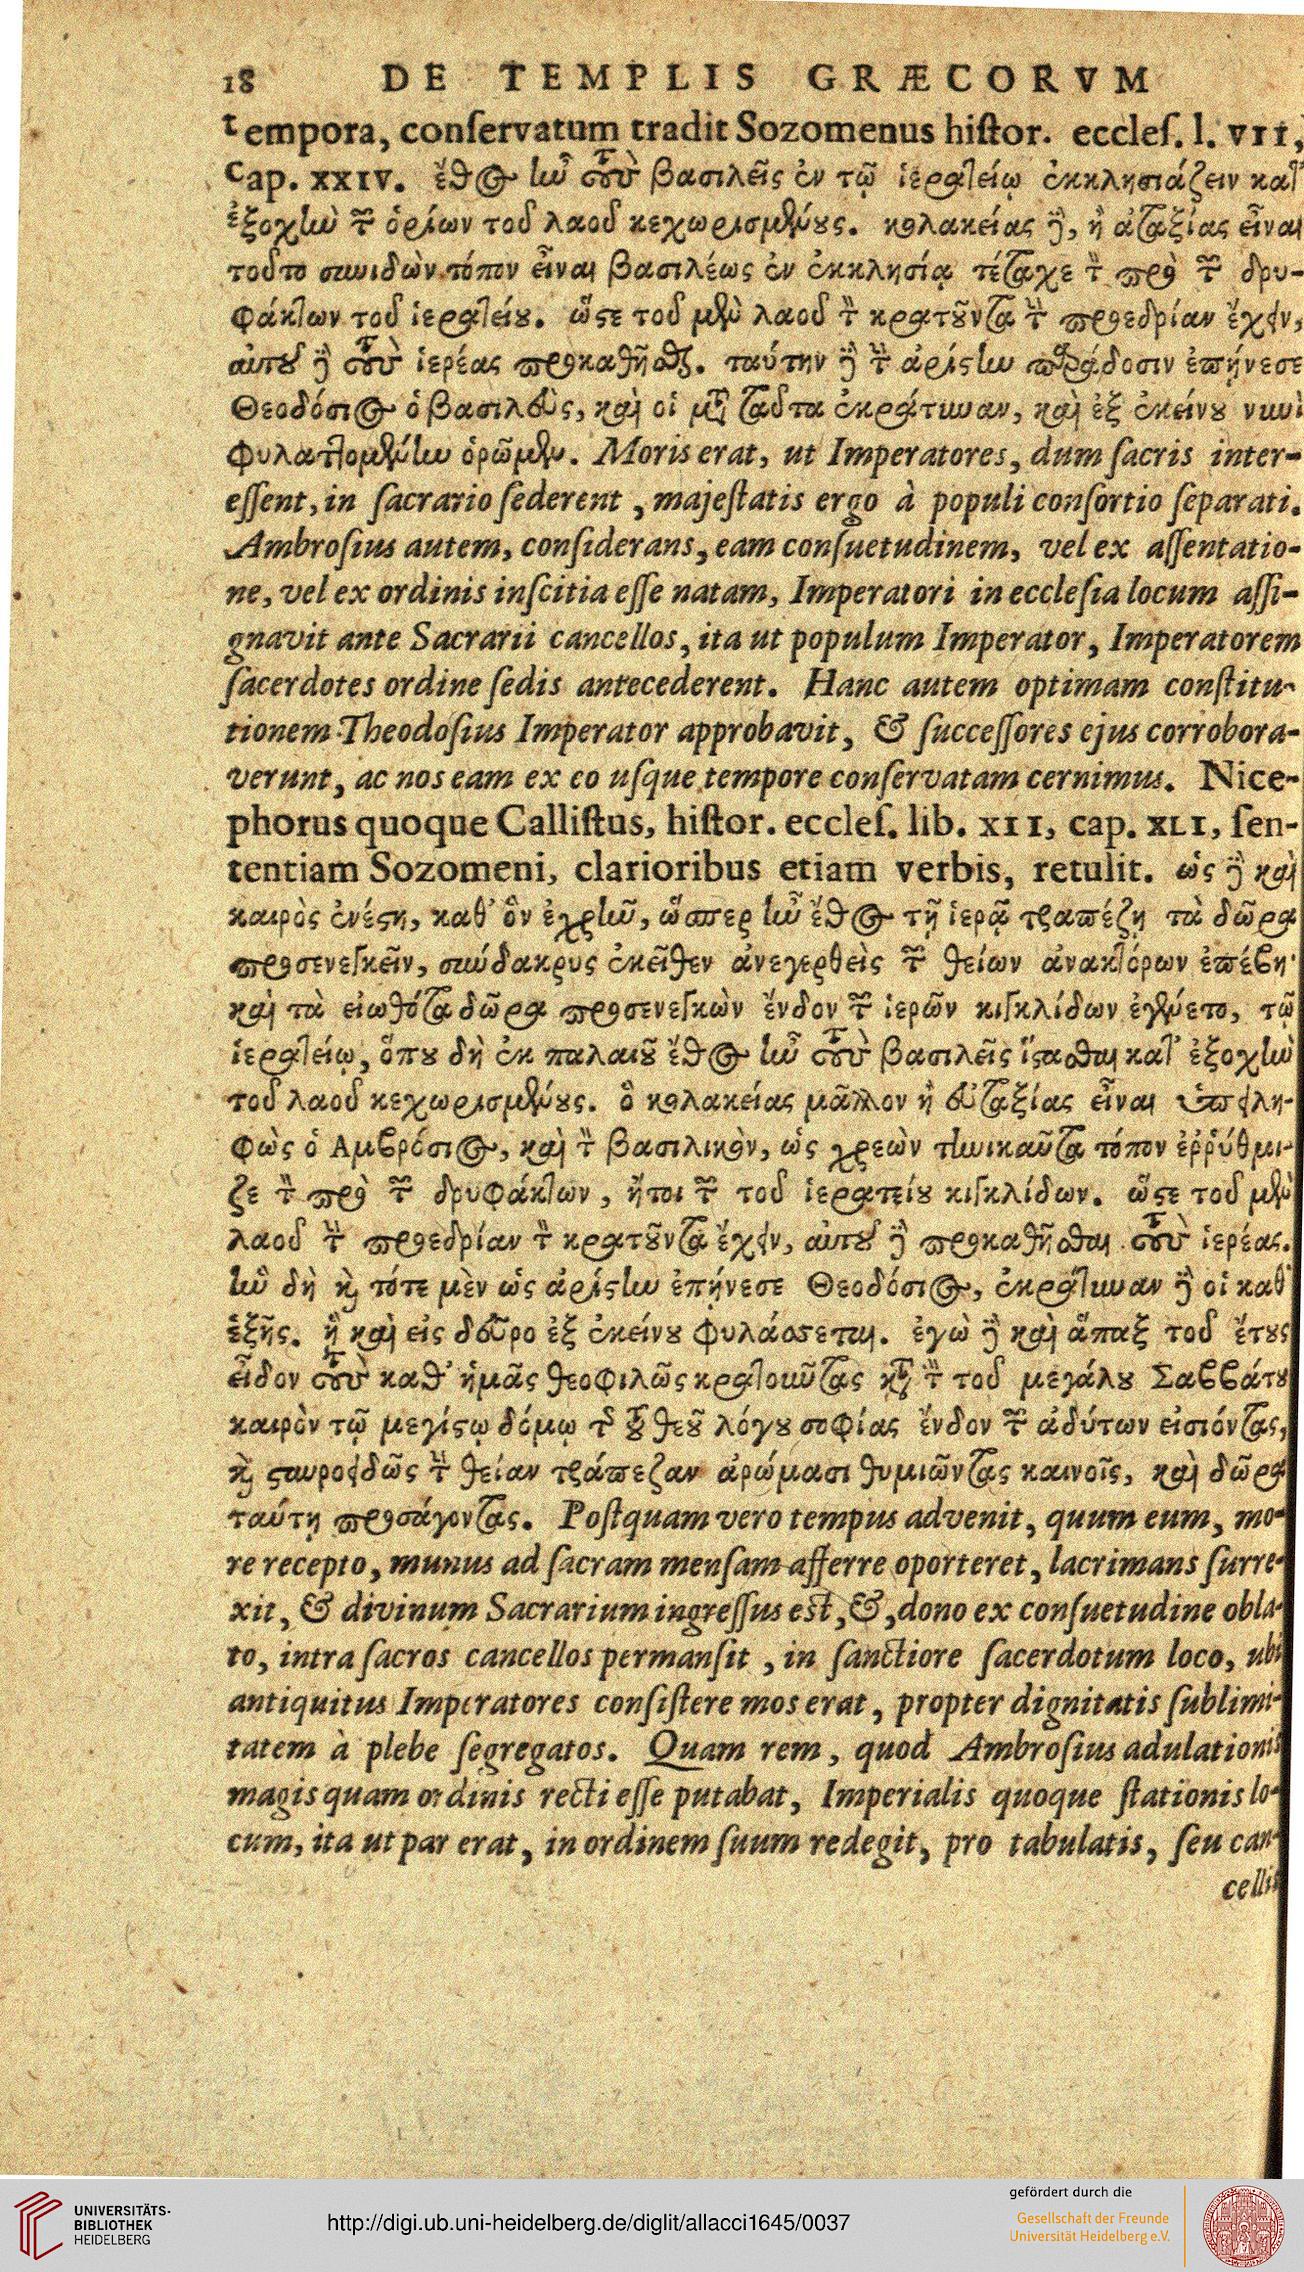 18 DE TEMPLIS GRÆCORVM
tempora, conſervatum tradit Sozomenus hiſtor. eccleſ. l. VII,
cap. XXIV. ἔθος ἦν τοὺς βασιλεῖς ἐν τῷ ἱερατείῳ ἐκκλησιάζειν κατ'
ἐξοχὴν τῶν ὁρίων τοῦ λαοῦ κεχωρισμένους. κολακείας δὲ, ἢ ἀταξίας εἶναι
τοῦτο συνιδὼν τόπον εἶναι βασιλέως ἐν ἐκκλησίᾳ τέταχε τὸν πρὸ τῶν δρυ-
φάκτων τοῦ ἱερατείου. ὥστε τοῦ μὲν λαοῦ τὸν κρατοῦντα τὴν προεδρίαν ἔχειν,
αὐτοῦ δὲ τοὺς ἱερέας προκαθῆσθαι. ταύτην δὲ τὴν ἀρίστην παράδοσιν ἐπήνεσε
Θεοδόσιος ὁ βασιλεὺς, καὶ οἱ μετὰ ταῦτα ἐκράτυναν, καὶ ἐξ ἐκείνου νυνὶ
φυλαττομένην ὁρῶμεν. Moris erat, ut Imperatores, dum ſacris inter-
eſſent, in ſacrario ſederent, majeſtatis ergo à populi conſortio ſeparati.
Ambroſius autem, conſiderans, eam conſuetudinem, vel ex aſſentatio-
ne, vel ex ordinis inſcitia eſſe natam, Imperatori in eccleſia locum aſſi-
gnavit ante Sacrarii cancellos, ita ut populum Imperator, Imperatorem
ſacerdotes ordine ſedis antecederent. Hanc autem optimam conſtitu-
tionem Theodoſius Imperator approbavit, & ſucceſſores ejus corrobora-
verunt, ac nos eam ex eo uſque tempore conſervatam cernimus. Nice-
phorus quoque Calliſtus, hiſtor. eccleſ. lib. XII, cap. XLI, ſen-
tentiam Sozomeni, clarioribus etiam verbis, retulit. ὡς δὲ καὶ
καιρὸς ἐνέστη, καθ' ὃν ἐχρῆν, ὥσπερ ἦν ἔθος τῇ ἱερᾷ τραπέζῃ τὰ δῶρα
προσενεγκεῖν, σύνδακρυς ἐκεῖθεν ἀνεγερθεὶς τῶν θείων ἀνακτόρων ἐπέβη·
καὶ τὰ εἰωθότα δῶρα προσενεγκὼν ἔνδον τῶν ἱερῶν κιγκλίδων ἐγένετο, τῷ
ἱερατείῳ, ὅπου δὴ ἐκ παλαιοῦ ἔθος ἦν τοὺς βασιλεῖς ἵστασθαι κατ' ἐξοχὴν
τοῦ λαοῦ κεχωρισμένους. ὃ κολακείας μᾶλλον ἢ εὐταξίας εἶναι ὑπειλη-
φὼς ὁ Αμβρόσιος, καὶ τὸν βασιλικὸν, ὡς χρεὼν τηνικαῦτα τόπον ἐῤῥύθμι-
ζε τὸν πρὸ τῶν δρυφάκτων, ἤτοι τῶν τοῦ ἱερατείου κιγκλίδων. ὥστε τοῦ μὲν
λαοῦ τὴν προεδρίαν τὸν κρατοῦντα ἔχειν, αὐτοῦ δὲ προκαθῆσθαι τοὺς ἱερέας.
ἣν δὴ καὶ τότε μὲν ὡς ἀρίστην ἐπήνεσε Θεοδόσιος, ἐκράτυναν δὲ οἱ καθ'
ἑξῆς. ἣ καὶ εἰς δεῦρο ἐξ ἐκείνου φυλάσσεται. ἐγὼ δὲ καὶ ἅπαξ τοῦ ἔτους
εἶδον τοὺς καθ' ἡμᾶς θεοφιλῶς κρατοῦντας κατὰ τὸν τοῦ μεγάλου Σαββάτου
καιρὸν τῷ μεγίστῳ δόμῳ τῆς τοῦ θεοῦ λόγου σοφίας ἔνδον τῶν ἀδύτων εἰσιόντας,
καὶ σταυροειδῶς τὴν θείαν τράπεζαν ἀρώμασι θυμιῶντας καινοῖς, καὶ δῶρα
ταύτῃ προσάγοντας. Poſtquam vero tempus advenit, quum eum, mo-
re recepto, munus ad ſacram menſam afferre oporteret, lacrimans ſurre-
xit, & divinum Sacrarium ingreſſus eſt, &, dono ex conſuetudine obla-
to, intra ſacros cancellos permanſit, in ſanctiore ſacerdotum loco, ubi
antiquitus Imperatores conſiſtere mos erat, propter dignitatis ſublimi-
tatem à plebe ſegregatos. Quam rem, quod Ambroſius adulationis
magis quam ordinis recti eſſe putabat, Imperialis quoque ſtationis lo-
cum, ita ut par erat, in ordinem ſuum redegit, pro tabulatis, ſeu can-
cellis
UNIVERSITÄTS-
BIBLIOTHEK
HEIDELBERG
http://digi.ub.uni-heidelberg.de/diglit/allacci1645/0037
gefördert durch die
Gesellschaft der Freunde
Universität Heidelberg e.V.